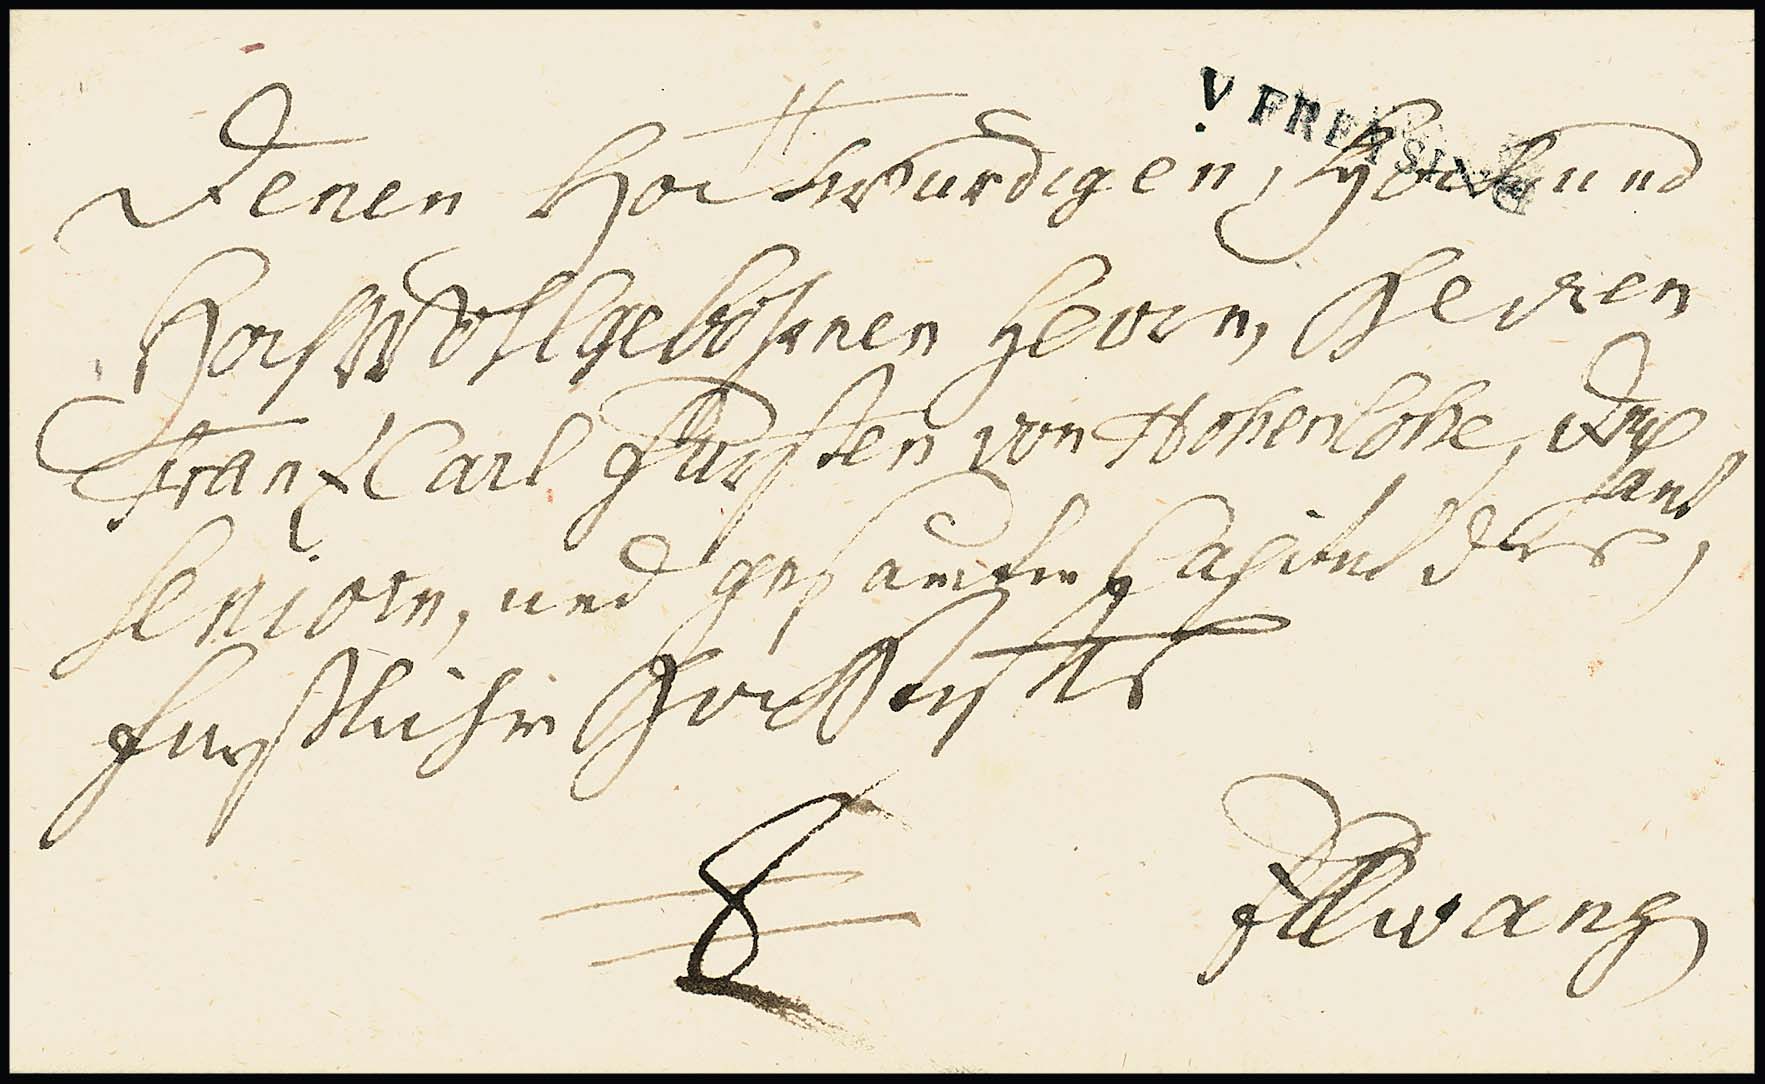 V. FREYSING
Denen Hochwürdigen, Hoch und
HochWohlgebohrnen Herrn, Herren
Frantz Carl Fürsten von Hohenlohe,
Seniorn, und gesambten Capitul des
fürstlichen Hochstüfts
8
Ellwang